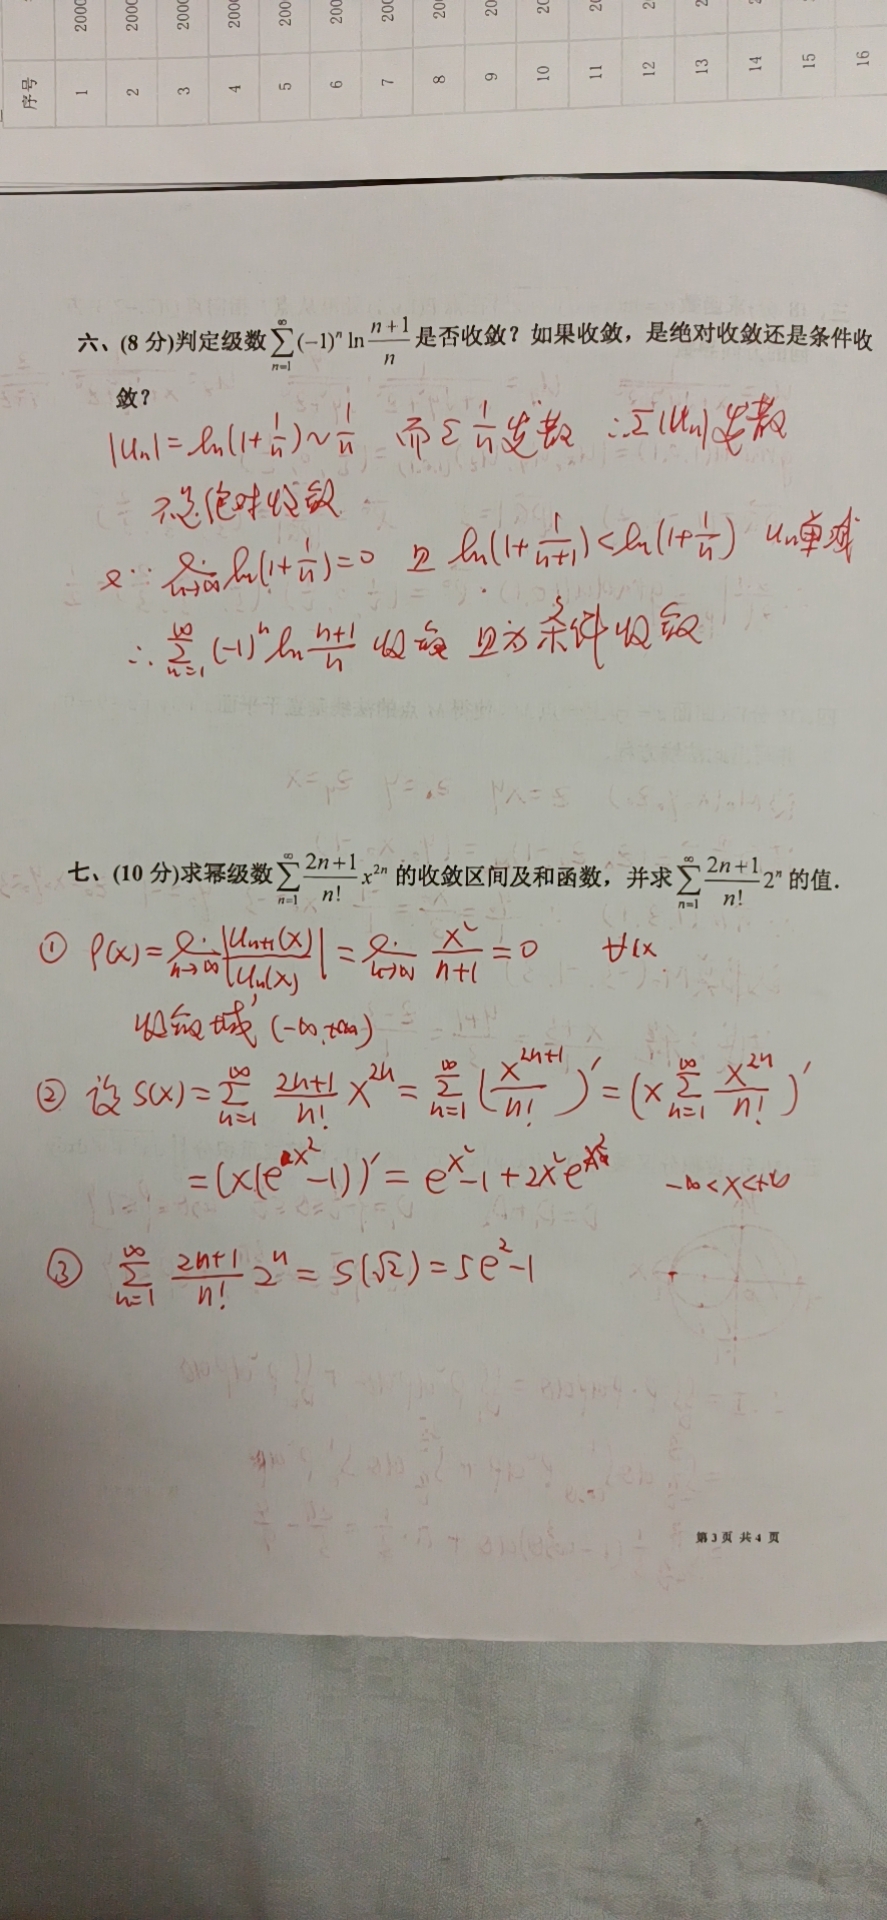 序号 1 2 3 4 5 6 7 8 9 10 11 12 13 14 15 16
六、(8 分)判定级数 ∑_{n=1}^{∞} (-1)^n ln (n+1)/n 是否收敛？如果收敛，是绝对收敛还是条件收
敛？
|u_n| = ln(1+1/n) ~ 1/n 而 Σ 1/n 发散 ∴ Σ|u_n| 发散
不是绝对收敛
∵ lim_{n→∞} ln(1+1/n) = 0 且 ln(1+1/(n+1)) < ln(1+1/n) u_n单减
∴ ∑_{n=1}^{∞} (-1)^n ln (n+1)/n 收敛 且为条件收敛
七、(10 分)求幂级数 ∑_{n=1}^{∞} (2n+1)/n! x^{2n} 的收敛区间及和函数，并求 ∑_{n=1}^{∞} (2n+1)/n! 2^n 的值.
① ρ(x) = lim_{n→∞} |u_{n+1}(x)/u_n(x)| = lim_{n→∞} x²/(n+1) = 0 ∀x
收敛域 (-∞,+∞)
② 设 S(x) = ∑_{n=1}^{∞} (2n+1)/n! x^{2n} = ∑_{n=1}^{∞} (x^{2n+1}/n!)′ = (x ∑_{n=1}^{∞} x^{2n}/n!)′
= (x(e^{x²}-1))′ = e^{x²}-1+2x²e^{x²} -∞<x<+∞
③ ∑_{n=1}^{∞} (2n+1)/n! 2^n = S(√2) = 5e²-1
第 3 页 共 4 页